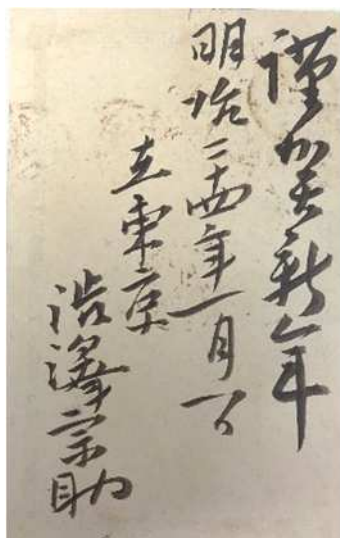 謹賀新年
明治二十四年一月一日
在東京
澁澤宗助